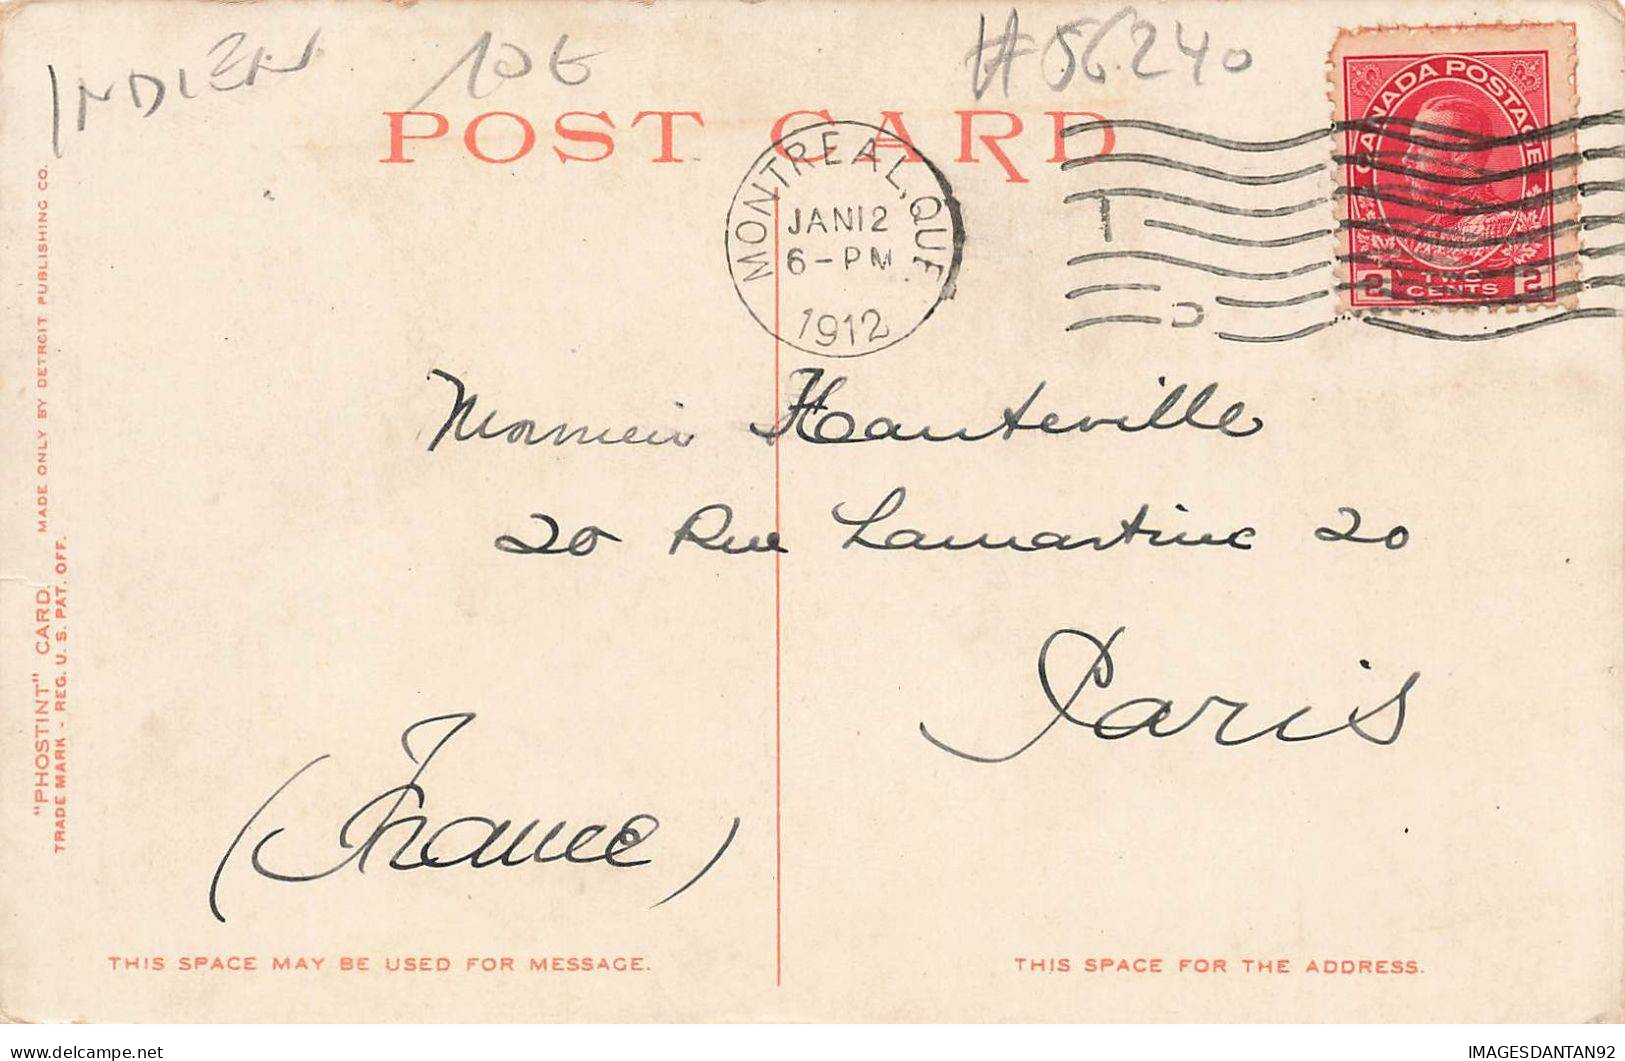 INDIEN 10€ #56240
POST CARD
CANADA POSTAGE
TWO
2 CENTS 2
MONTREAL, QUE.
JAN 12
6-PM
1912
Monsieur Hauteville
20 Rue Lamartine 20
Paris
(France)
"PHOSTINT" CARD. MADE ONLY BY DETROIT PUBLISHING CO.
TRADE MARK - REG. U. S. PAT. OFF.
THIS SPACE MAY BE USED FOR MESSAGE.
THIS SPACE FOR THE ADDRESS.
delcampe.net
IMAGESDANTAN92